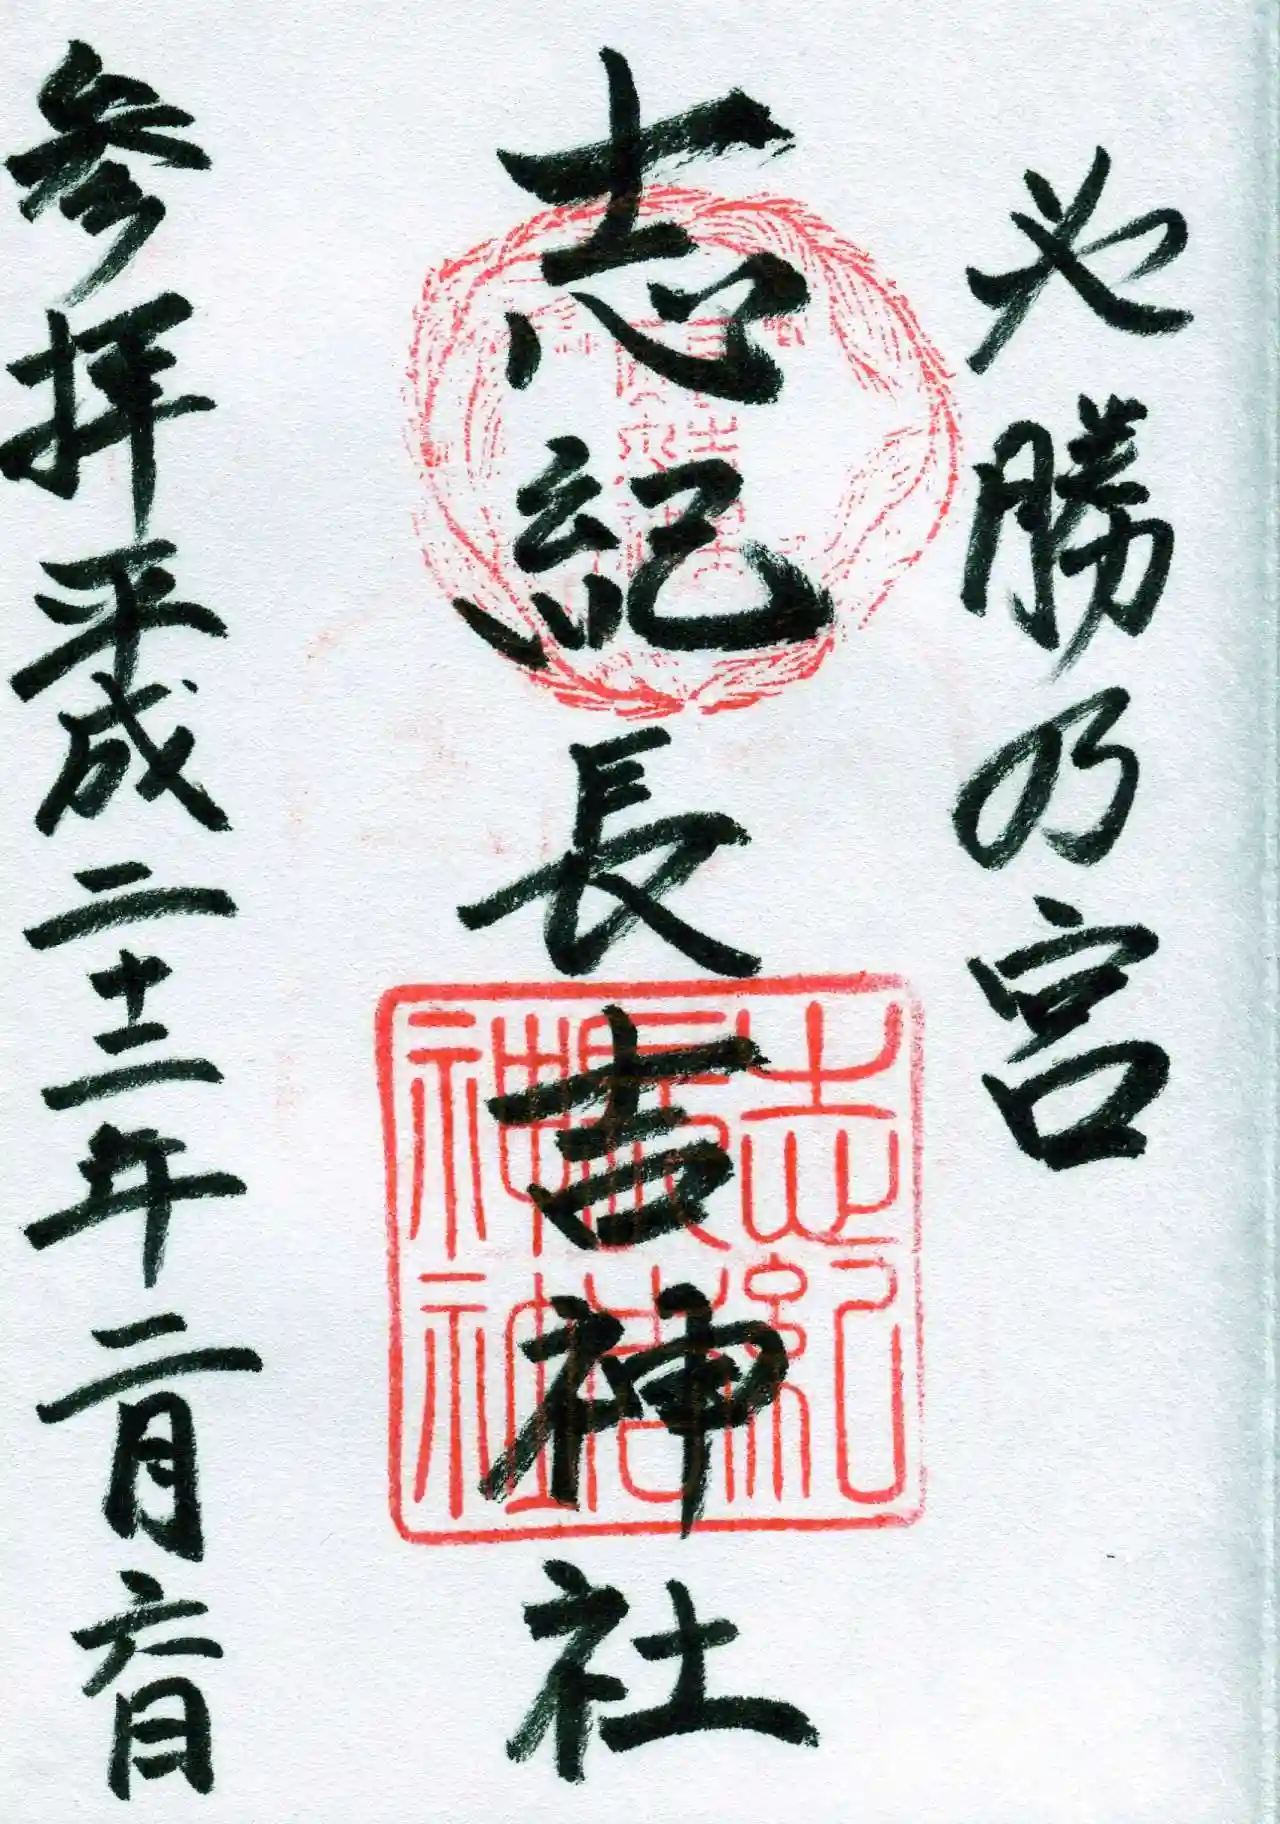 必勝乃宮
志紀長吉神社
参拝 平成二十三年二月六日
志紀
長吉
神社